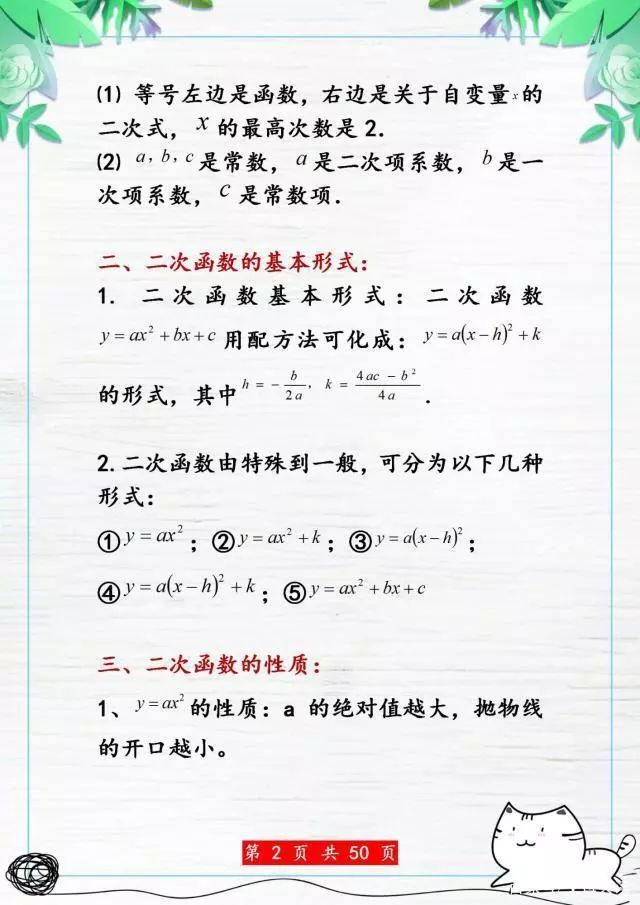 ⑴ 等号左边是函数，右边是关于自变量x的
二次式，x的最高次数是2．
⑵ a，b，c是常数，a是二次项系数，b是一
次项系数，c是常数项．
二、二次函数的基本形式：
1. 二次函数基本形式：二次函数
y=ax²+bx+c用配方法可化成：y=a(x−h)²+k
的形式，其中h=−b/2a，k=(4ac−b²)/4a．
2.二次函数由特殊到一般，可分为以下几种
形式：
①y=ax²；②y=ax²+k；③y=a(x−h)²；
④y=a(x−h)²+k；⑤y=ax²+bx+c
三、二次函数的性质：
1、y=ax²的性质：a 的绝对值越大，抛物线
的开口越小。
第 2 页 共 50 页